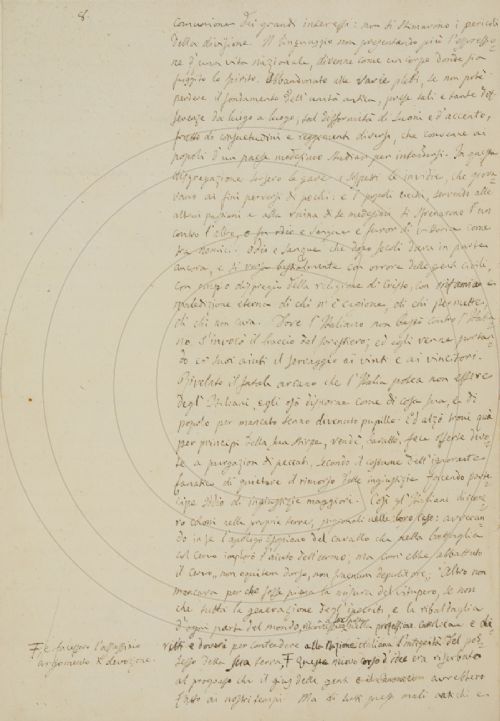 8.
comunione dei grandi interessi: non si stimarono i pericoli
della divisione. Il linguaggio non presentando più l'espressio-
ne d'una vita nazionale, divenne come un corpo donde sia
fuggito lo spirito. Abbandonate alle varie plebi, se non poté
perdere il fondamento dell'unità antica, prese tali e tante dif-
ferenze da luogo a luogo, tal difformità di suoni e d'accenti,
frutto di consuetudini e reggimenti diversi, che convenne ai
popoli d'un paese medesimo studiare per intendersi. In questa
disgregazione sorsero le gare i sospetti le invidie, che giova-
vano ai fini perversi di pochi: e i popoli ciechi, servendo alle
altrui passioni e alla ruina di se medesimi si sfrenarono l'un
contro l'altro, e fu odio e sangue e furor di vendetta come
tra nemici. Odio e sangue che dopo secoli dura in parte
ancora, e con orrore delle genti civili,
con dispregio della religione di Cristo, con infamia e
maledizione eterna di chi n'è cagione, di chi permette,
di chi non cura. Dove l'Italiano non bastò contro l'Italia-
no, s'invocò il braccio del forestiero; ed egli venne portan-
do co' suoi aiuti il servaggio ai vinti e ai vincitori.
Rivelato il fatale arcano che l'Italia potea non essere
degl'Italiani, egli osò disporne come di cosa sua, e di
popolo per mercato fanno divenuto pupillo. Ed alzò troni qua
per principi della sua stirpe, vendé, barattò, fece offerte divo-
te a purgazion di peccati, secondo il costume dell'ignorante
fanatico di quietare il rimorso delle ingiustizie facendo parte-
cipe Iddio di ingiustizie maggiori. Così gl'Italiani
nella propria terra, nelle loro case: avveran-
do in se l'apologo Esopiano del cavallo che nella battaglia
col cervo implorò l'aiuto dell'uomo; ma poi ebbe abbattuto
il cervo, "non equitem dorso, non fraenum depulit ore." Altro non
mancava perché fosse piena la misura del vitupero, se non
che tutta la generazione degl'ipocriti e la ribaldaglia
d'ogni parte del mondo, della professione cattolica e di-
ritti e doveri per contendere alla nazione italiana l'integrità del pos-
sesso della sua terra, Ŧ Questo nuovo corso d'idee era riserbato
al progresso che il giure delle genti e il avrebbero
fatto ai nostri tempi. Ma di tali mali antichi e
Ŧ e facesse l'assassinio
argomento di devozione.